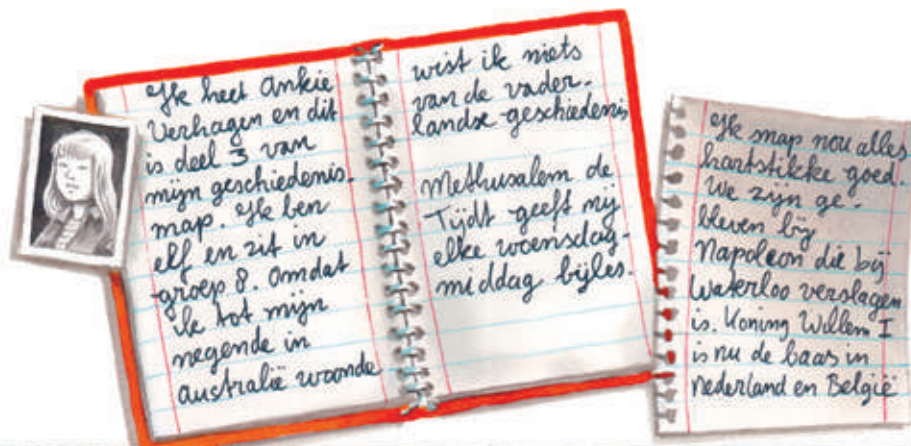 Ik heet Ankie
Verhagen en dit
is deel 3 van
mijn geschiedenis-
map. Ik ben
elf en zit in
groep 8. Omdat
ik tot mijn
negende in
australië woonde
wist ik niets
van de vader-
landse geschiedenis
Methusalem de
Tijdt geeft mij
elke woensdag-
middag bijles.
Ik snap nou alles
hartstikke goed.
We zijn ge-
bleven bij
Napoleon die bij
Waterloo verslagen
is. Koning Willem I
is nu de baas in
nederland en België